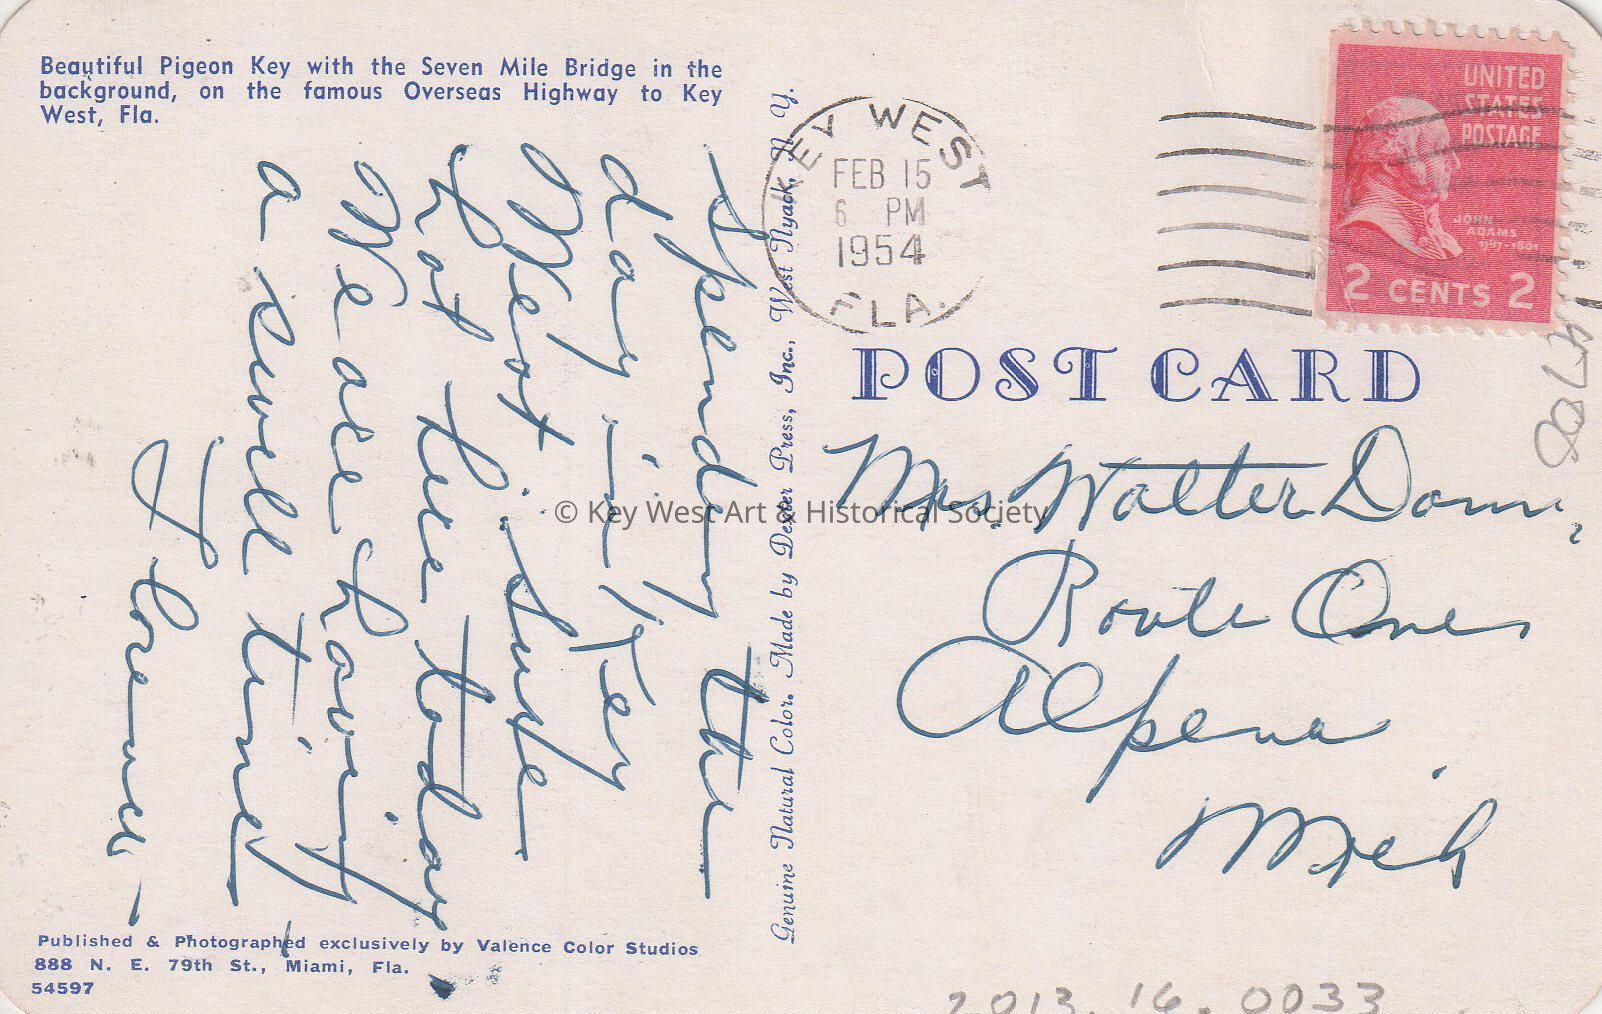 Beautiful Pigeon Key with the Seven Mile Bridge in the
background, on the famous Overseas Highway to Key
West, Fla.
Spending the
day in Key
West. Sure
hot here today
We are having
a swell time.
Genuine Natural Color. Made by Dexter Press, Inc., West Nyack, N. Y.
Published & Photographed exclusively by Valence Color Studios
888 N. E. 79th St., Miami, Fla.
54597
KEY WEST
FEB 15
6 PM
1954
FLA.
UNITED
STATES
POSTAGE
JOHN
ADAMS
1797-1801
2 CENTS 2
POST CARD
Mrs. Walter
Route One
Alpena
Mich
© Key West Art & Historical Society
2013.16.0033